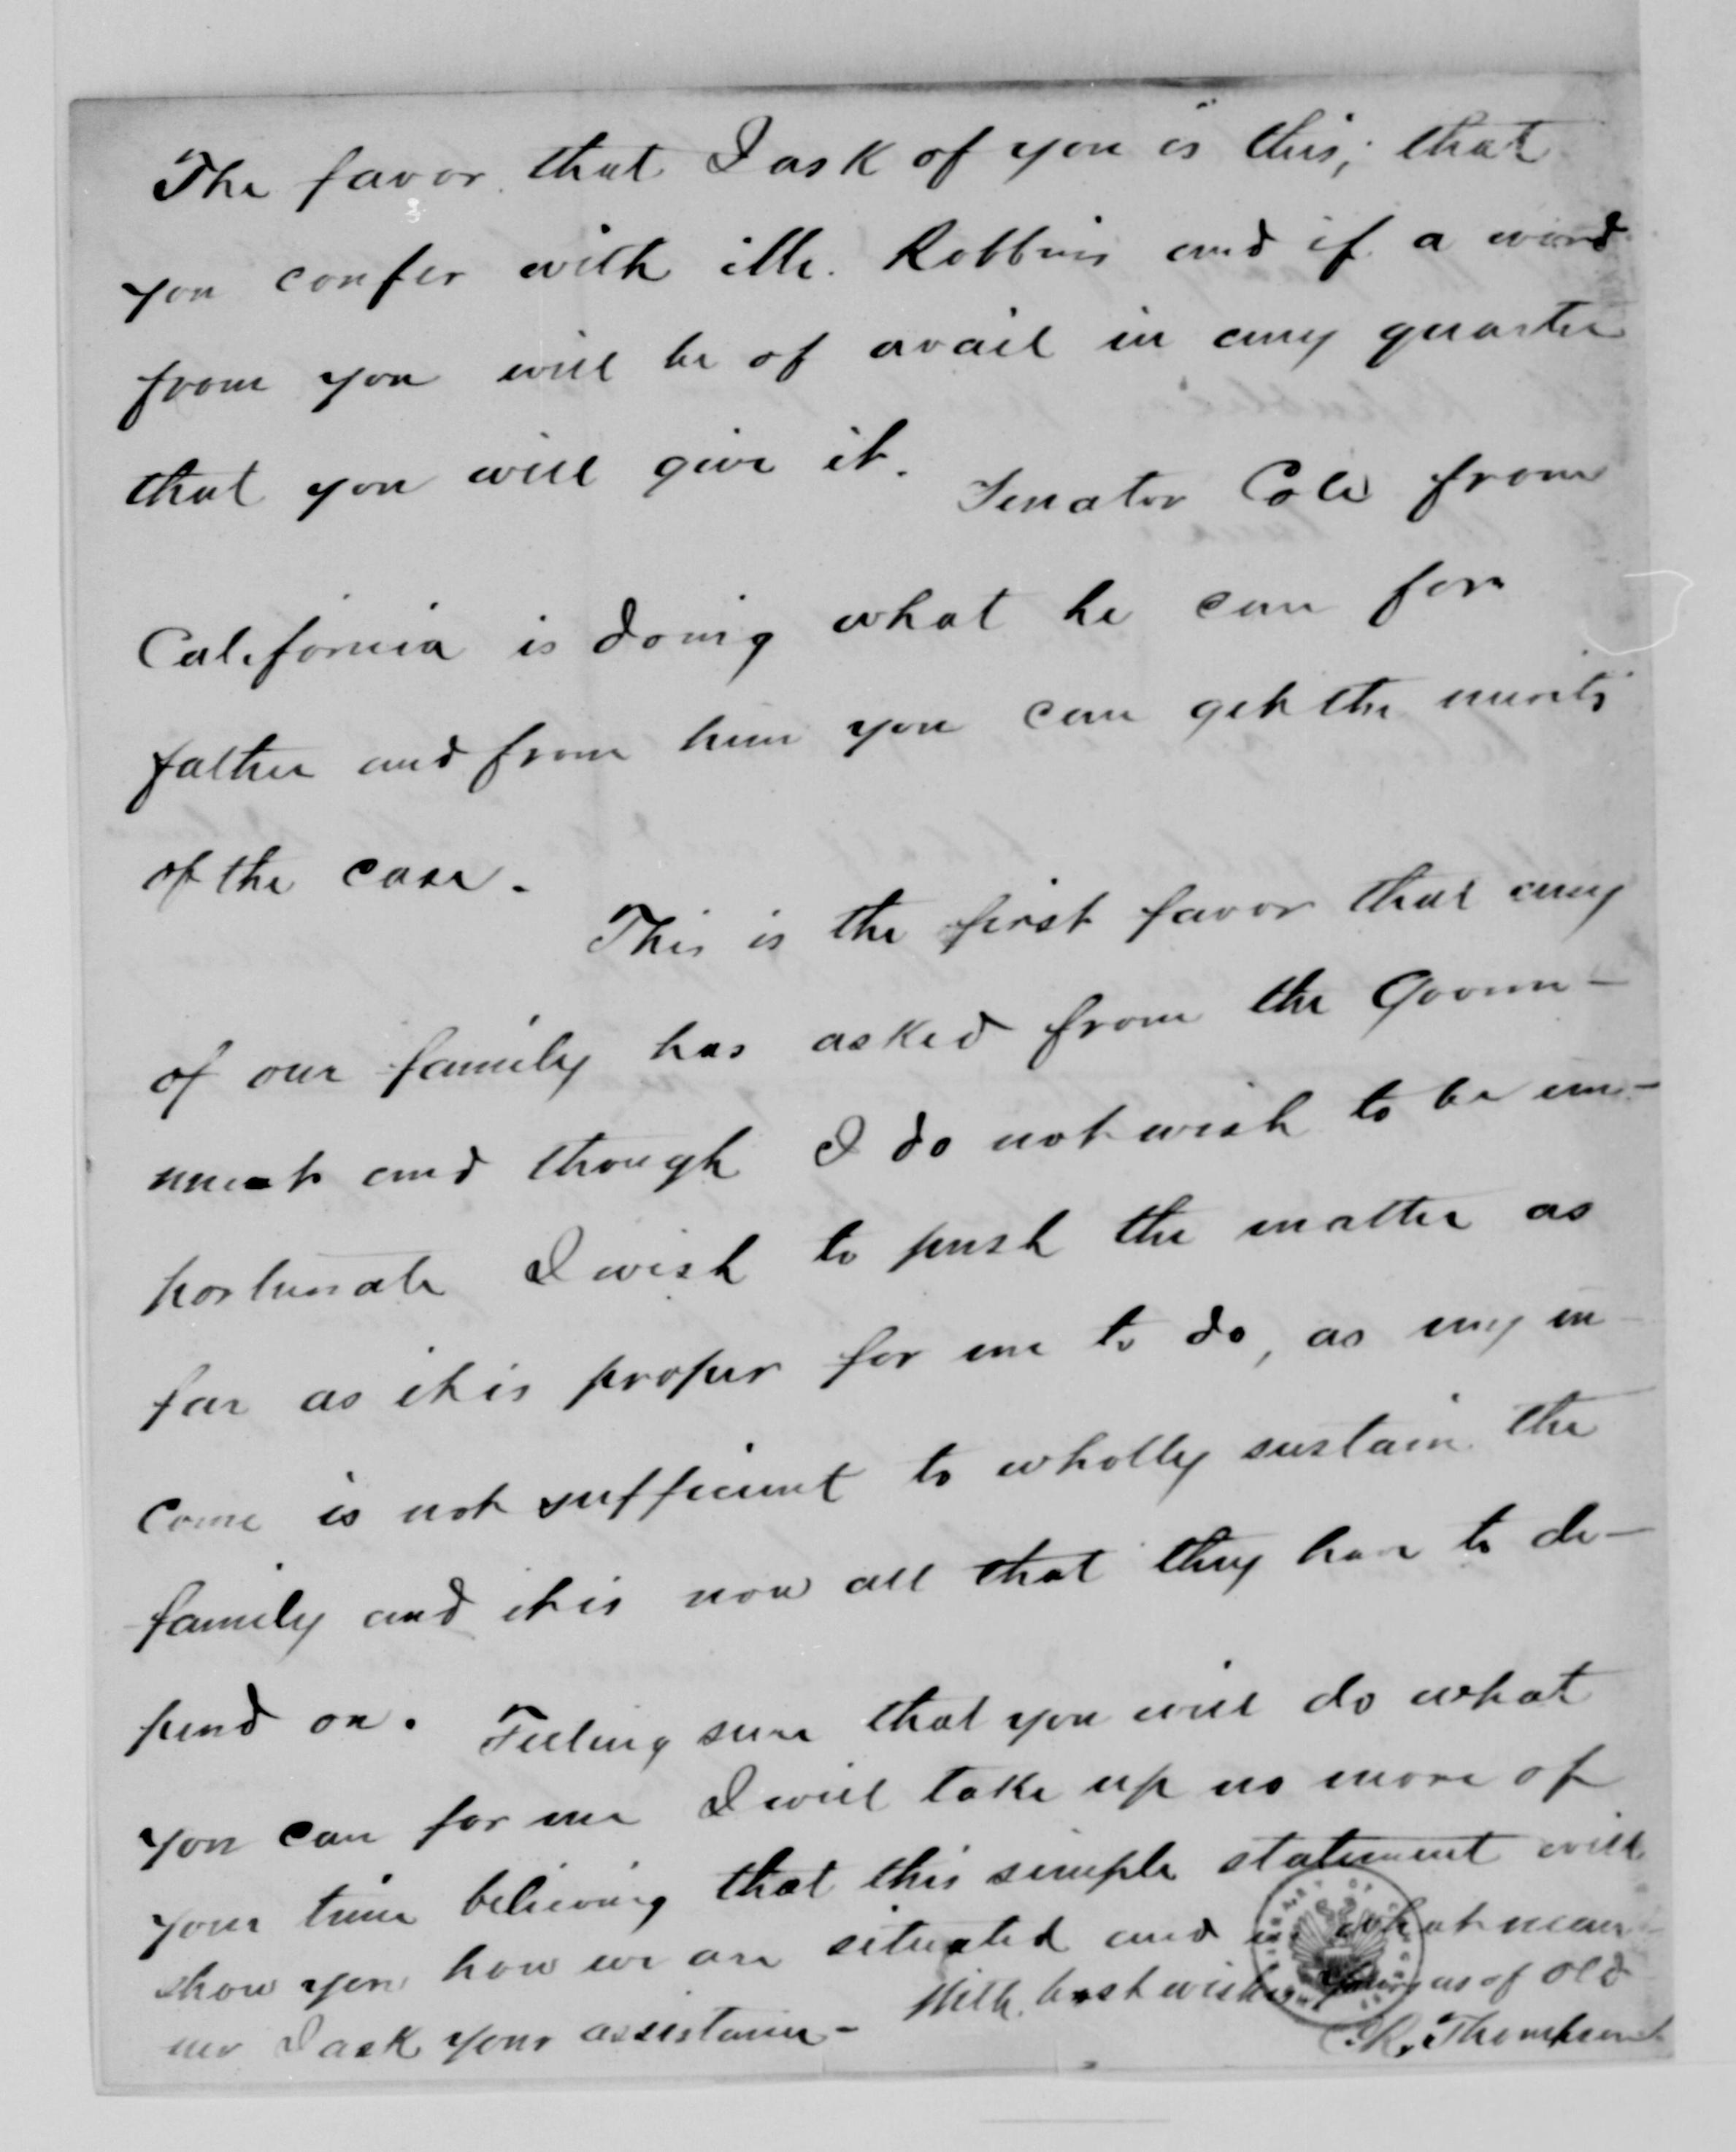 The favor that I ask of you is this; that
you confer with Mr. Robbins and if a word
from you will be of avail in any quarter
that you will give it. Senator Cole from
California is doing what he can for
father and from him you can get the merits
of the case.
This is the first favor that any
of our family has asked from the Govern-
ment and though I do not wish to be im-
portunate I wish to push the matter as
far as it is proper for me to do, as my in-
come is not sufficient to wholly sustain the
family and it is now all that they have to de-
pend on. Feeling sure that you will do what
you can for me I will take up no more of
your time believing that this simple statement will
show you how we are situated and in what man-
ner I ask your assistance - With best wishes yours as of old
Thompson